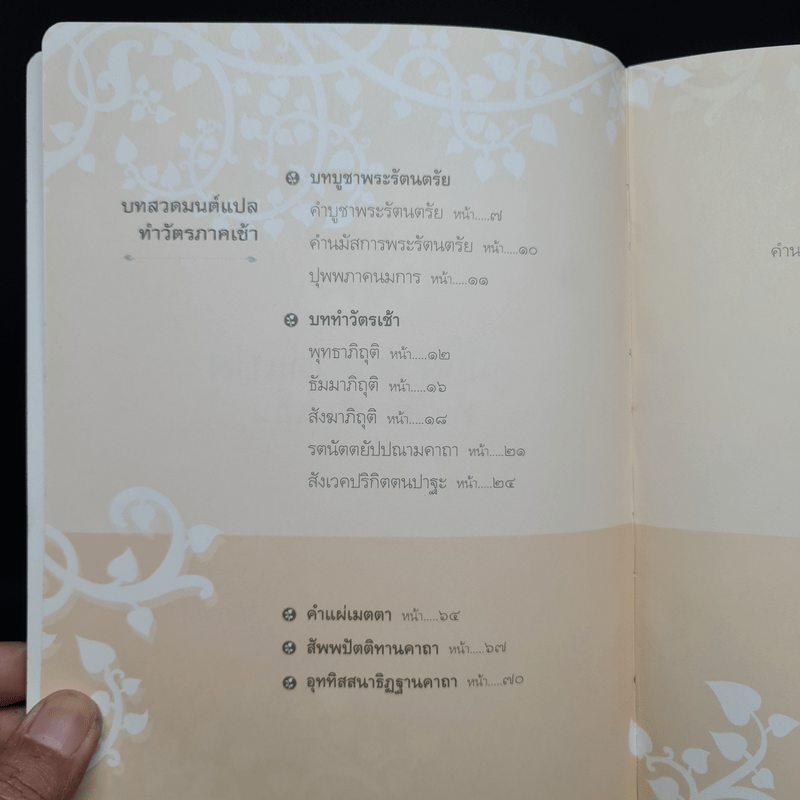 บทสวดมนต์แปล
ทำวัตรภาคเช้า
บทบูชาพระรัตนตรัย
คำบูชาพระรัตนตรัย หน้า.....๗
คำนมัสการพระรัตนตรัย หน้า.....๑๐
ปุพพภาคนมการ หน้า.....๑๑
บททำวัตรเช้า
พุทธาภิถุติ หน้า.....๑๒
ธัมมาภิถุติ หน้า.....๑๖
สังฆาภิถุติ หน้า.....๑๘
รตนัตตยัปปณามคาถา หน้า.....๒๑
สังเวคปริกิตตนปาฐะ หน้า.....๒๔
คำแผ่เมตตา หน้า.....๖๔
สัพพปัตติทานคาถา หน้า.....๖๗
อุททิสสนาธิฏฐานคาถา หน้า.....๗๐
คำน